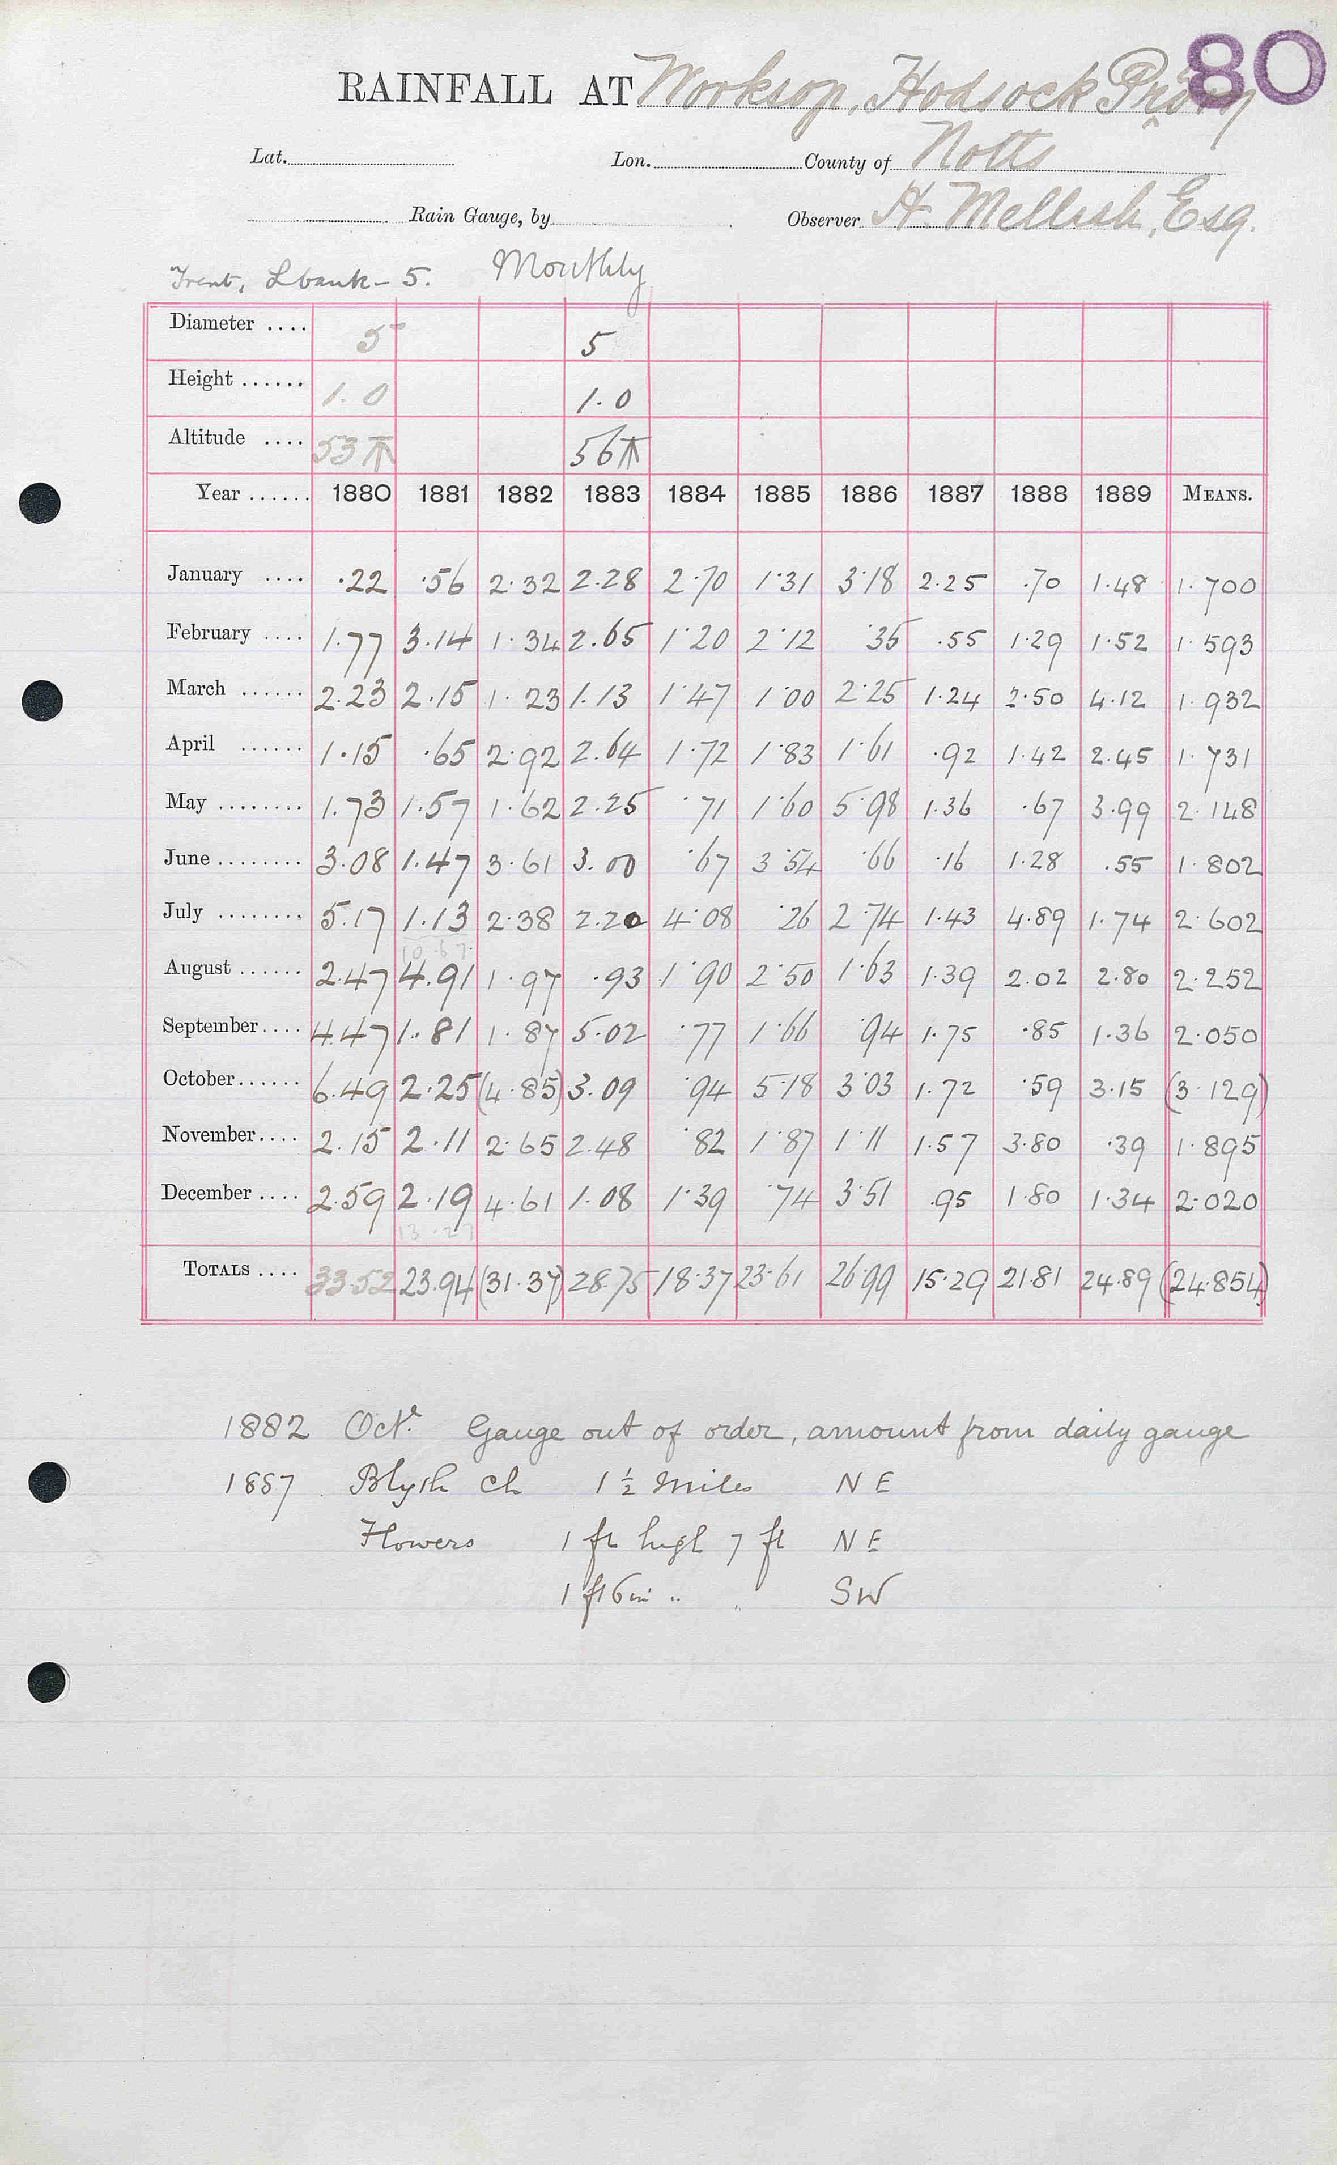 80
RAINFALL AT Worksop, Hodsock Priory
Lat. Lon. County of Notts
Rain Gauge, by Observer H. Mellish, Esq.
Trent, L bank - 5. Monthly
Diameter .... 5 5
Height ...... 1.0 1.0
Altitude .... 53 56
Year ...... 1880 1881 1882 1883 1884 1885 1886 1887 1888 1889 MEANS.
January .... .22 .56 2.32 2.28 2.70 1.31 3.18 2.25 .70 1.48 1.700
February .... 1.77 3.14 1.34 2.65 1.20 2.12 .35 .55 1.29 1.52 1.593
March ...... 2.23 2.15 1.23 1.13 1.47 1.00 2.25 1.24 2.50 4.12 1.932
April ...... 1.15 .65 2.92 2.64 1.72 1.83 1.61 .92 1.42 2.45 1.731
May ........ 1.73 1.57 1.62 2.25 .71 1.60 5.98 1.36 .67 3.99 2.148
June ........ 3.08 1.47 3.61 3.00 .67 3.54 .66 .16 1.28 .55 1.802
July ........ 5.17 1.13 2.38 2.20 4.08 .26 2.74 1.43 4.89 1.74 2.602
10.67
August ...... 2.47 4.91 1.97 .93 1.90 2.50 1.63 1.39 2.02 2.80 2.252
September .... 4.47 1.81 1.87 5.02 .77 1.66 .94 1.75 .85 1.36 2.050
October ...... 6.49 2.25 (4.85) 3.09 .94 5.18 3.03 1.72 .59 3.15 (3.129)
November .... 2.15 2.11 2.65 2.48 .82 1.87 1.11 1.57 3.80 .39 1.895
December .... 2.59 2.19 4.61 1.08 1.39 .74 3.51 .95 1.80 1.34 2.020
13.27
TOTALS .... 33.52 23.94 (31.37) 28.75 18.37 23.61 26.99 15.29 21.81 24.89 (24.854)
1882 Octr. Gauge out of order, amount from daily gauge
1887 Blyth Ch 1½ Miles NE
Flowers 1 ft high 7 ft NE
1 ft 6 in " " SW